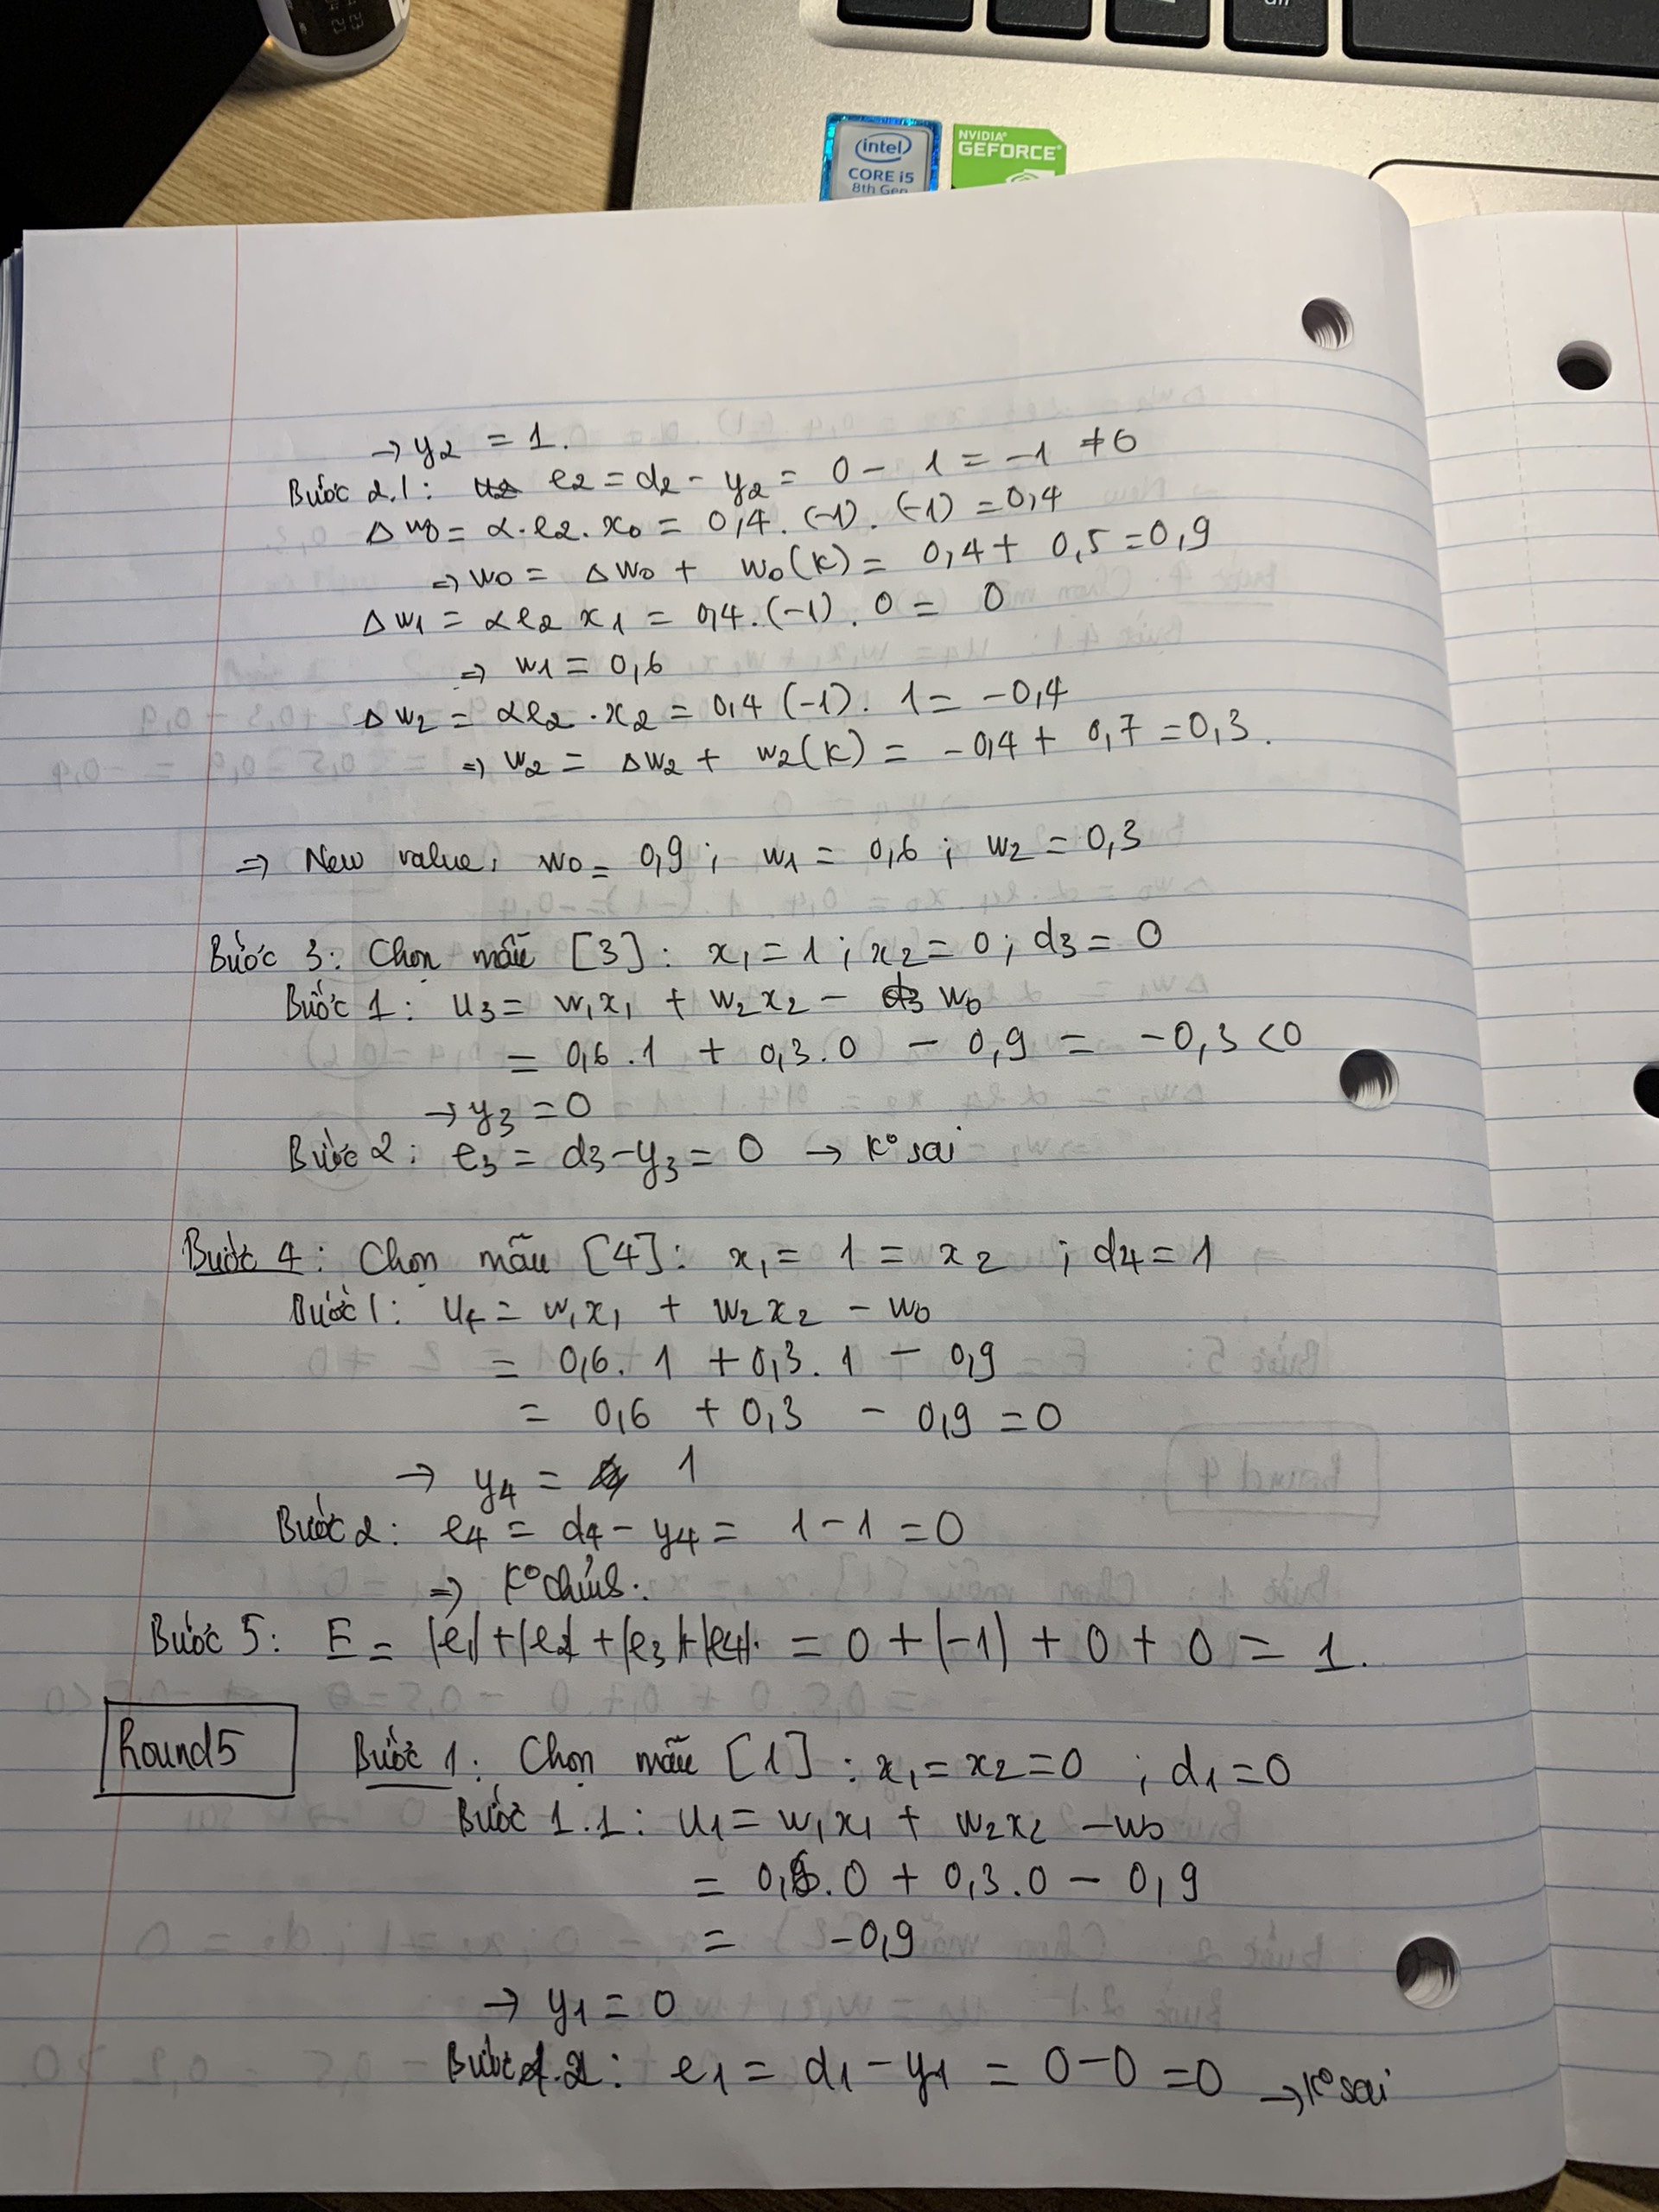 intel
CORE i5
8th Gen
NVIDIA
GEFORCE
→ y2 = 1.
Bước 2.1: e2 = d2 - y2 = 0 - 1 = -1 ≠ 0
Δw0 = α.e2.x0 = 0,4.(-1).(-1) = 0,4
⇒ w0 = Δw0 + w0(k) = 0,4 + 0,5 = 0,9
Δw1 = αe2 x1 = 0,4.(-1).0 = 0
⇒ w1 = 0,6
Δw2 = αe2.x2 = 0,4(-1).1 = -0,4
⇒ w2 = Δw2 + w2(k) = -0,4 + 0,7 = 0,3.
⇒ New value: w0 = 0,9; w1 = 0,6; w2 = 0,3
Bước 3: Chọn mẫu [3]: x1 = 1; x2 = 0; d3 = 0
Bước 1: u3 = w1x1 + w2x2 - w0
= 0,6.1 + 0,3.0 - 0,9 = -0,3 < 0
→ y3 = 0
Bước 2: e3 = d3 - y3 = 0 → K° sai
Bước 4: Chọn mẫu [4]: x1 = 1 = x2 ; d4 = 1
Bước 1: u4 = w1x1 + w2x2 - w0
= 0,6.1 + 0,3.1 - 0,9
= 0,6 + 0,3 - 0,9 = 0
→ y4 = 1
Bước 2: e4 = d4 - y4 = 1 - 1 = 0
⇒ K° chỉnh.
Bước 5: E = |e1| + |e2| + |e3| + |e4|. = 0 + |-1| + 0 + 0 = 1.
Round5
Bước 1: Chọn mẫu [1]: x1 = x2 = 0 ; d1 = 0
Bước 1.1: u1 = w1x1 + w2x2 - w0
= 0,6.0 + 0,3.0 - 0,9
= -0,9
→ y1 = 0
Bước 1.2: e1 = d1 - y1 = 0 - 0 = 0 → K° sai